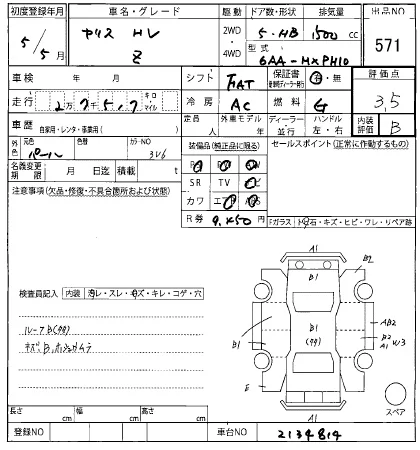 初度登録年月 車名・グレード 駆動 ドア数・形状 排気量 出品NO
5/5月 ヤリス HV Z 2WD 4WD 5・HB 1500 cc 571
型式 6AA-MXPH10
車検 年 月 シフト FAT 保証書 有・無 評価点
走行 2万7千5,7 キロ マイル 冷房 AC 燃料 G 3.5
車歴 自家用・レンタ・事業用( ) 定員 人 外車モデル 年 ディーラー・並行 ハンドル 左・右 内装評価 B
外色 元色 パール 色替 カラーNO 3V6 装備品(純正品に限る) セールスポイント(正常に動作するもの)
名義変更期限 月 日迄 積載 t
SR TV ナビ
注意事項(欠品・修復・不具合箇所および状態)
カワ エアB
R券 9,450円
Fガラス 飛石・キズ・ヒビ・ワレ・リペア跡
検査員記入 内装 汚レ・スレ・キズ・キレ・コゲ・穴
A1
B1
B2
ルーフB(99)
B1 (99)
AB2
B1
B2
A1
W3
E
A1
スペア
長さ cm 幅 cm 高さ cm
登録NO 車台NO 2134814